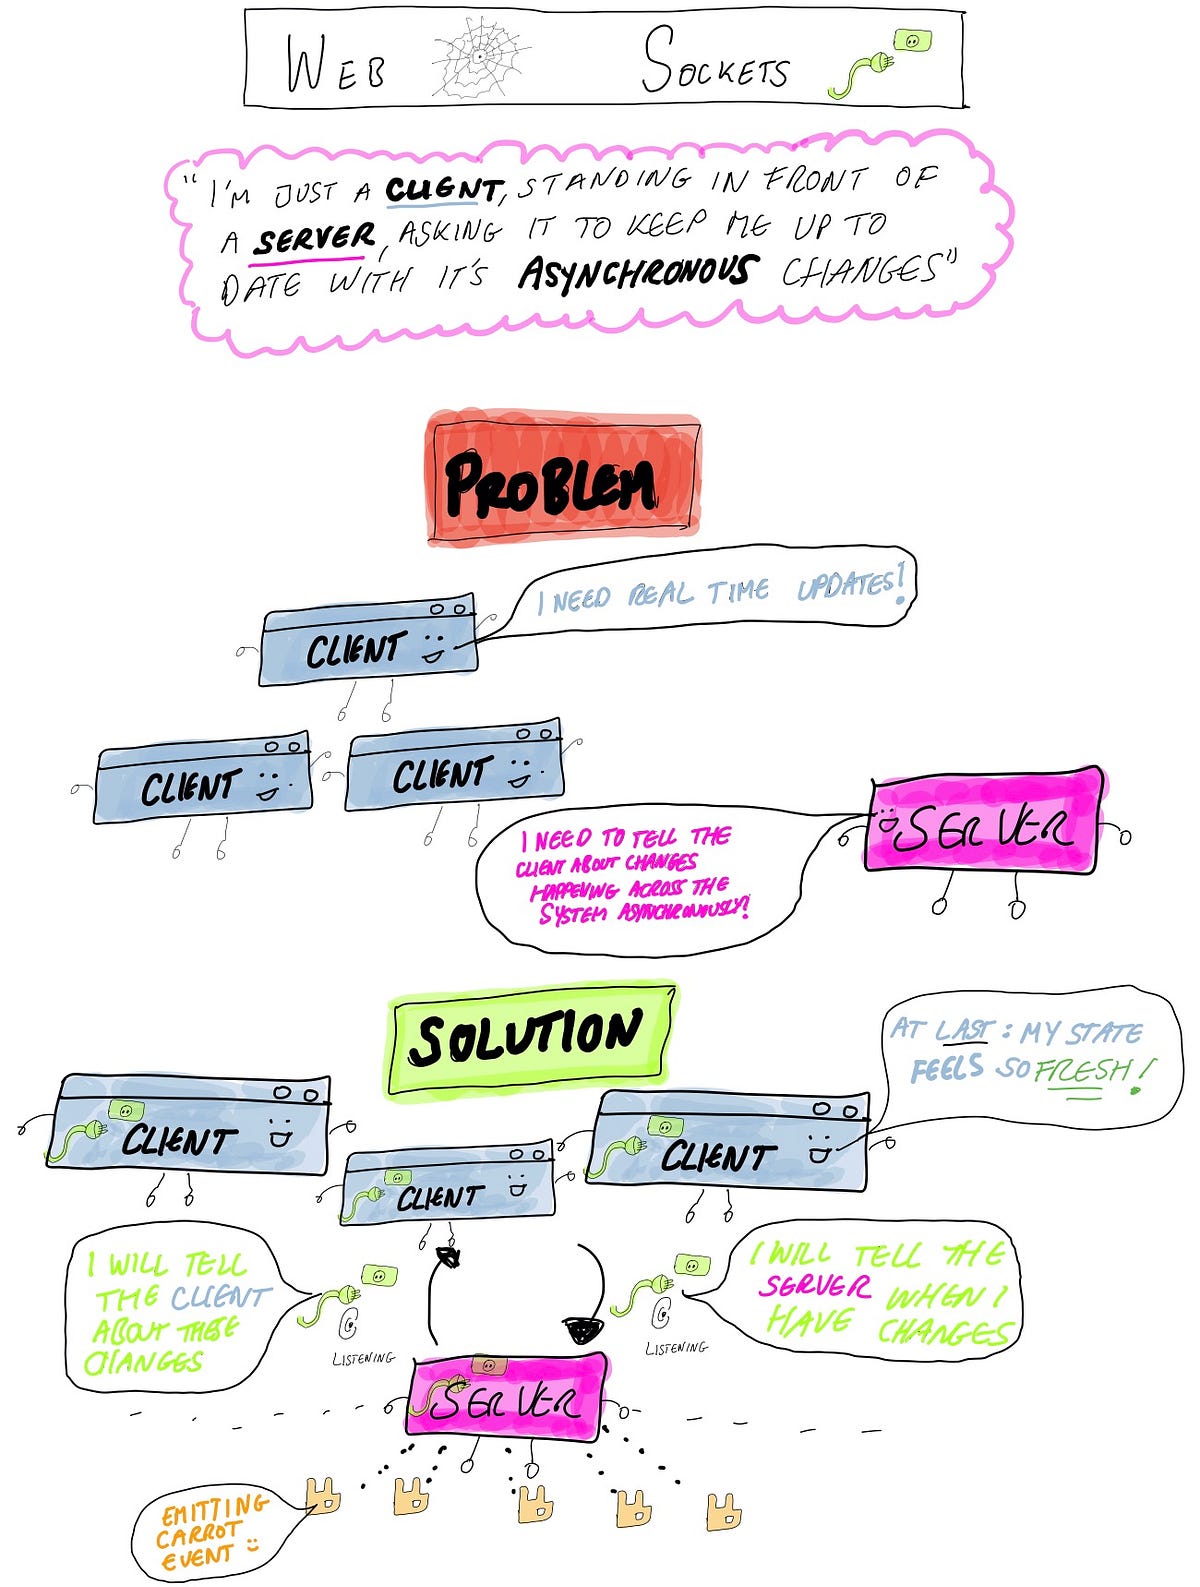 WEB SOCKETS
"I'M JUST A CLIENT, STANDING IN FRONT OF
A SERVER, ASKING IT TO KEEP ME UP TO
DATE WITH IT'S ASYNCHRONOUS CHANGES"
PROBLEM
I NEED REAL TIME UPDATES!
CLIENT
CLIENT
CLIENT
SERVER
I NEED TO TELL THE
CLIENT ABOUT CHANGES
HAPPENING ACROSS THE
SYSTEM ASYNCHRONOUSLY!
SOLUTION
AT LAST: MY STATE
FEELS SO FRESH!
CLIENT
CLIENT
CLIENT
I WILL TELL
THE CLIENT
ABOUT THESE
CHANGES
LISTENING
I WILL TELL THE
SERVER WHEN I
HAVE CHANGES
LISTENING
SERVER
EMITTING
CARROT
EVENT